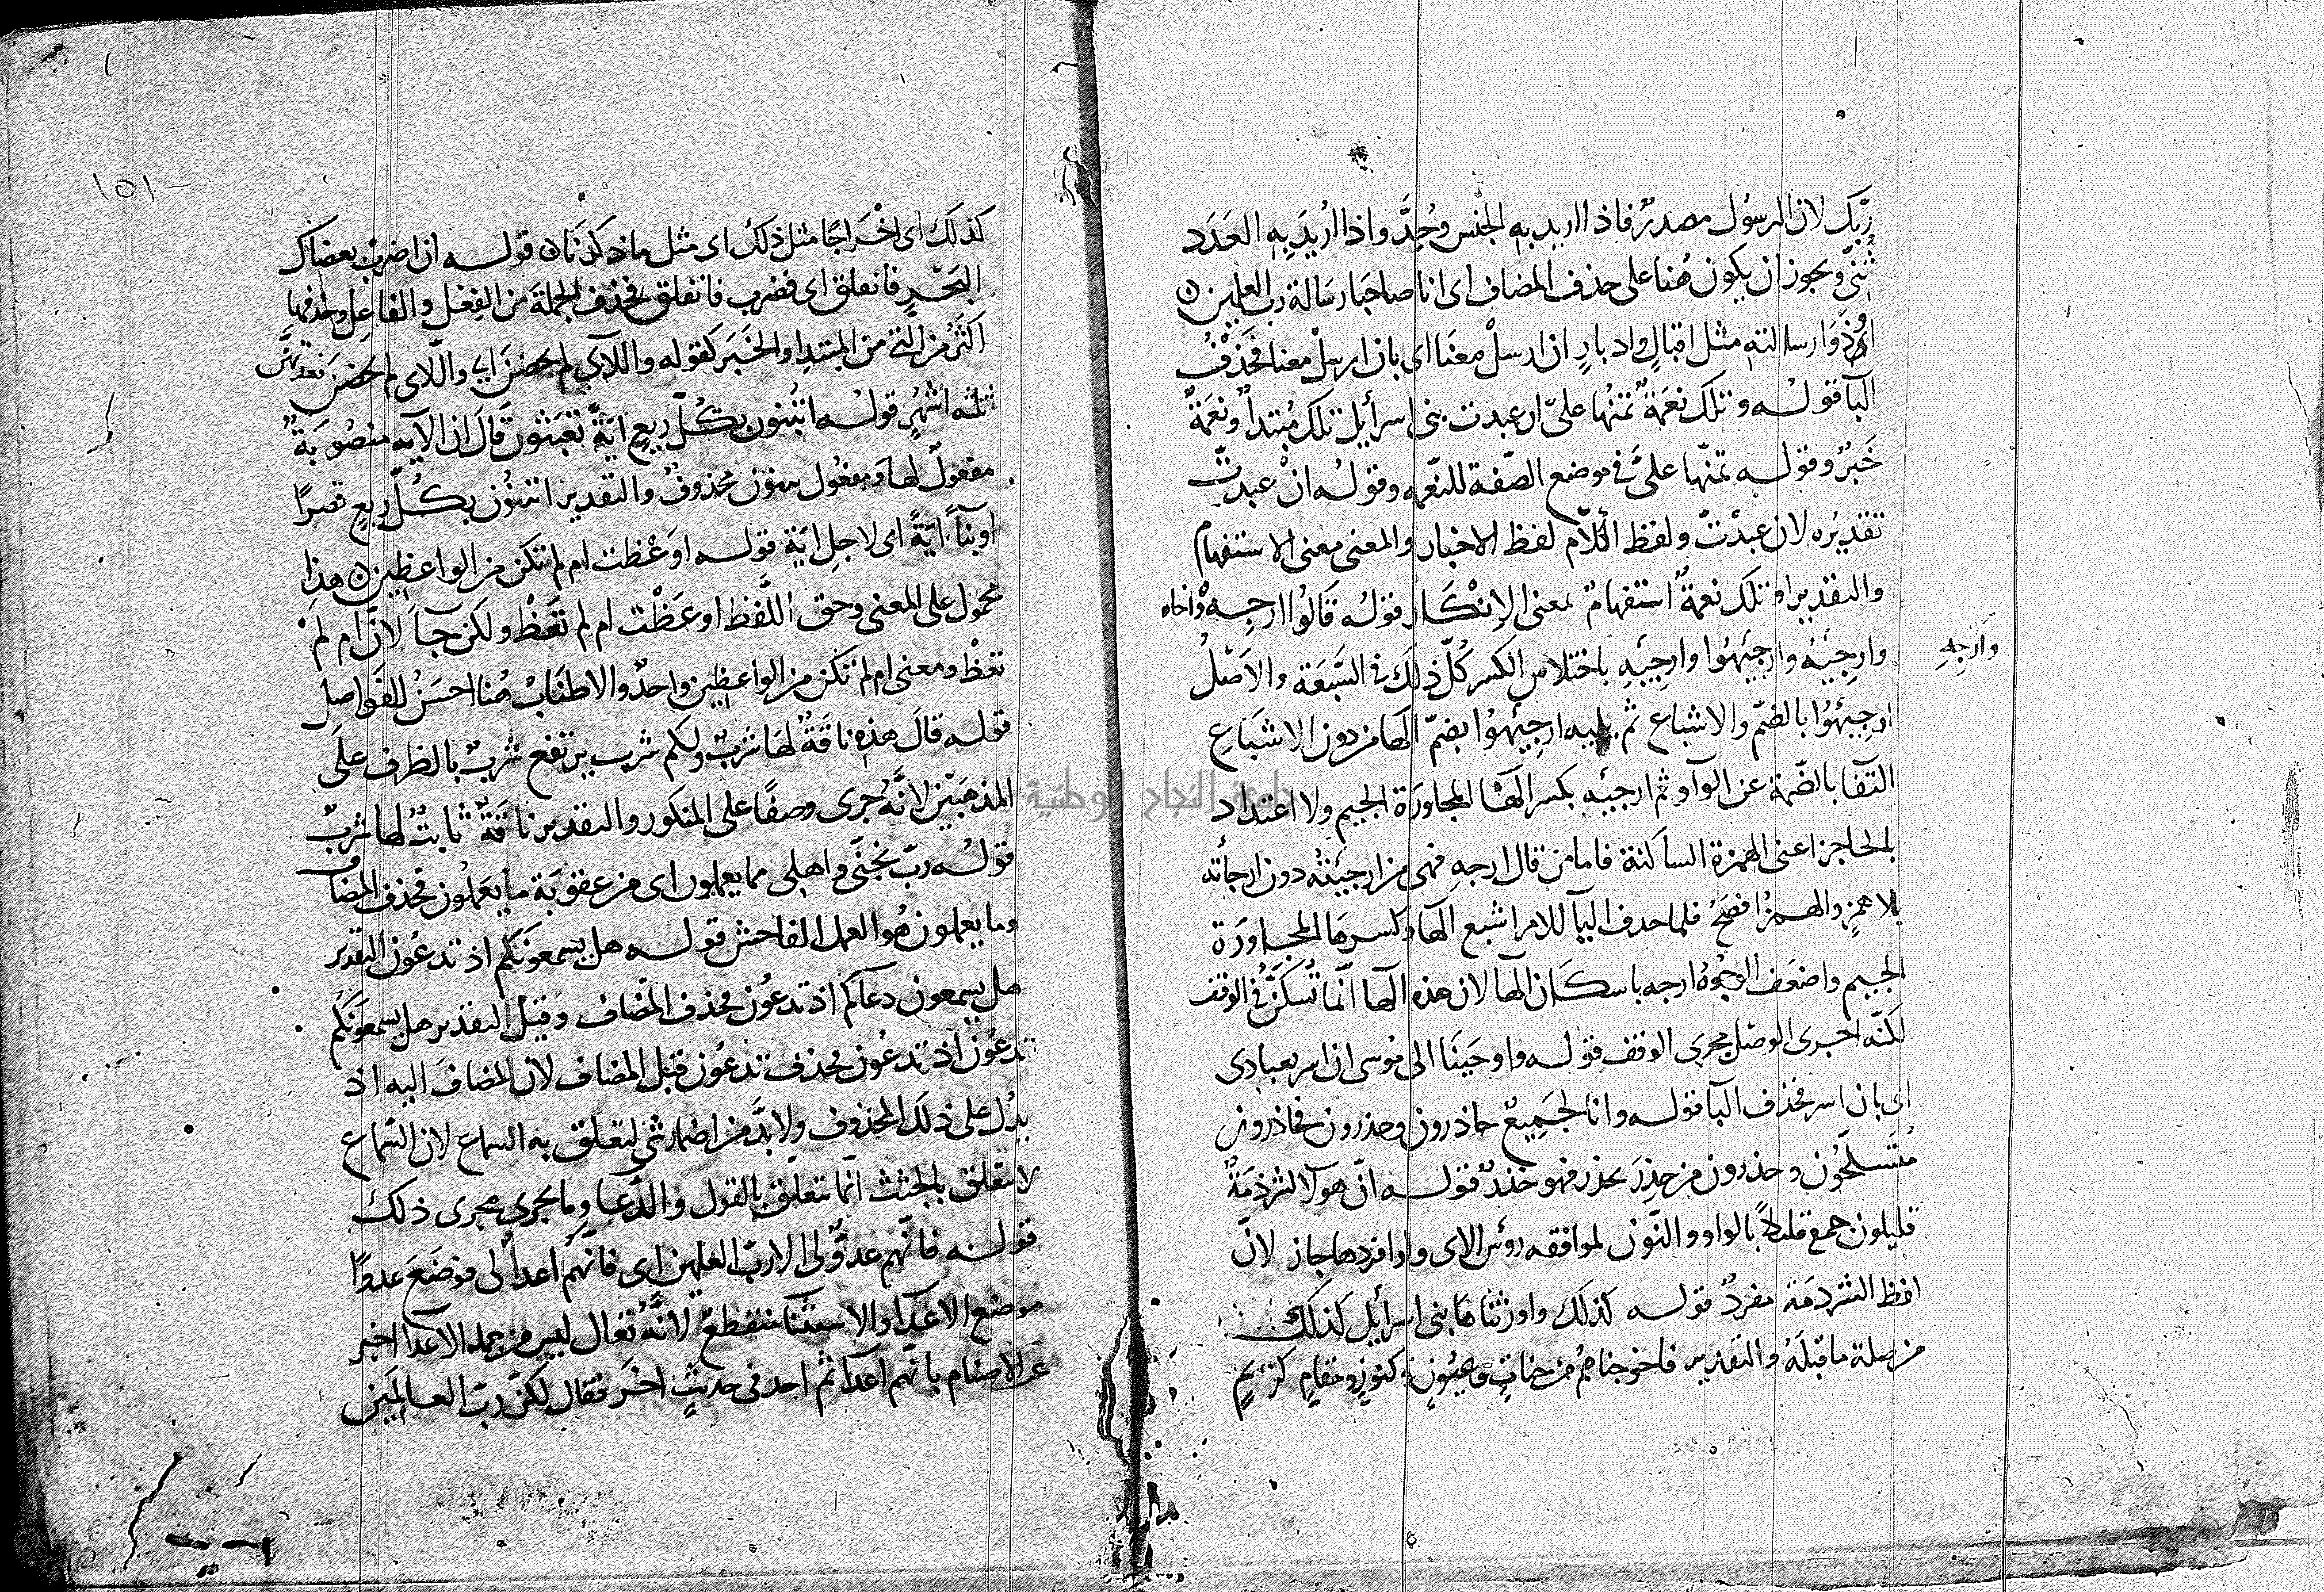 ربّك لان الرسُول مصدرٌ فاذا اريد به الجنس وُحِّدَ واذا اُريدَ بِه العَدَد
ثُنّى ويجوز ان يكون هُنا على حذف المضاف اى انا صاحبَا رسَالة رب العلمين
او ذَوَا رسالته مثل اقبالٍ وادبارٍ ان ارسلْ معنَا اى بان ارسلْ معنا فحَذفُ
البآ قولُه وتلك نعمَةٌ تمنُها علىّ ان عبدت بنى اسرأيل تلك مُبتدأٌ ونعمَةٌ
خَبرٌ وقوله تمنّها علىَّ فى موضع الصّفة للنّعمه وقولُه انْ عبدتّ
تقديرُه لان عبدْتّ ولفظ الكلام لفظ الاخبار والمعنى معنى الاستفهام
والتقدير او تلك نعمةٌ استفهامٌ بمعنى الاِنكَار قولُه قَالوُا ارجِهْ واخاه
وارجِئْهُ وارجِئْهُوا وارجِئْهِ باختلاس الكسر كُلّ ذلَكَ فى السَّبعَة والاَصْلُ
وارجِهِ
ارجِئهُوا بالضمّ والاشباع ثم يليه ارجِئهُوا بضمّ الهَا من دون الاشبَاعِ
اكتفآ بالضّمة عن الواو ثم ارجئهِ بكسر الهآ لمجاورَة الجيم ولا اعتداد
بالحاجز اعنى الهمزة الساكنة فاما من قال ارجهِ فهى من ارجيْتُه دون ارجأته
بلا همزٍ والهمزُ افصَحُ فلما حذف اليآ للامر اشبع الهآ وكسرهَا لمجاورَة
الجيم واضعَف الوجُوه ارجه باسكَان الهَا لان هذه الهآ انّما تُسكَّنُ فى الوقف
لكنّه اجرى الوصْل مجرى الوقف قوله واوحَينَا الى مُوسى ان اسر بعبادى
اى بان اسر فحذف البآ قوله وانا لجَمِيعٌ حاذرون وحذرون فحاذرون
مُتَسلّحُون وحذرون من حذِرَ يحذر فهو حَذرٌ قوله انّ هولآ لشرذمَةٌ
قليلون جمع قليلاً بالواو والنّون لموافقه رؤس الاى ولو افردها جاز لانّ
لفظ الشرذمَة مفردٌ قوله كذلك واورثنَاهَا بنى اسرأيل كذلك
من صلة ما قبلَهُ والتقدير فاخرجناهُم من جناتٍ وعيُونٍ وكنوزٍ ومقامٍ كريمٍ
١٥١
كذلك اى اخْرَاجًا مثل ذلك اى مثل ما ذكرنَا قوله ان اضرب بعضاك
البَحْرِ فانفلق اى فضرب فانفلق فحذف الجملَة من الفِعْل والفاعِل وحذفها
اكثَرُ من التى من المبتدإ والخَبَر كقوله واللآى لم يحضنَ اى واللاى لم يحضنَ فعدتهنَّ
ثلثه اشهُرٍ قولُه اتبنون بكُلّ ريعٍ ايَةً تعبَثُونَ قَالَ ان الايه منصُوبَةٌ
مفعولٌ لهَا ومفعُول تبنون محذوفٌ والتقدير اتبنُون بكُلّ ريعٍ قصرًا
او بناءً ايَةً اى لاجلِ ايَةٍ قوله اوَعْظت ام لم تكن من الواعظين هذا
محمول على المعنى وحق اللّفظ اوعَظْت ام لم تعَظْ ولكن جآ لانَّ ام لمْ
تعظْ ومعنى ام لم تكن من الواعظين واحدٌ والاطنَابُ هُنا احسَنُ للفَواصل
قوله قالَ هذه ناقَةٌ لهَا شربٌ ولكم شرب يرتفع شربٌ بالظرف علَى
المذهبَيْن لانَّهُ جرى وصفًا على المنكور والتقدير ناقةٌ ثابتٌ لها شربٌ
قولُه ربّ نجّنى واهلى مما يعملون اى من عقوبَة ما يَعمَلُون فحذف المضاف
وما يعملون هُو العمل الفاحش قوله هل يسمعونَكم اذ تدعُون التقدير
هل يسمعون دعآكم اذ تدعُون فحذف المضاف وَقيْل التقدير هل يسمعونَكم
تدعُون اذ تدعُون فحذف تدعُون قبل المضاف لان المضافَ اليه اذ
يدُل على ذلك المحذوف ولا بدَّ من اضمار شىٍ ليتعلق به السماع لان السّماع
لا يتعلق بالجثث انّما يتعلّق بالقول والدُّعآ وما يجرى مجرى ذلك
قولُه فانّهم عدوٌّ لى الا ربّ العلمين اى فانّهم اعدآ لى فوضَعَ عدوًّا
موضع الاعدَآ والاستثنآ منقطعٌ لانَّهُ تعالى ليس من جمله الاعدَآ اخبر
عن الاصنام بانّهم اعدآ ثم اخذ فى حديثٍ اخَر فقال لكنّ ربّ العالمَين